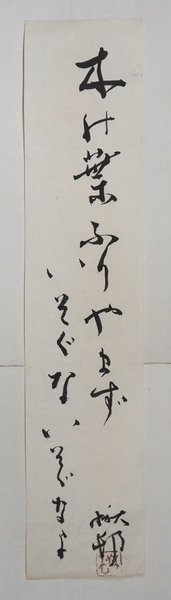 木の葉ふりやまず
いそぐないそぐなよ
楸邨